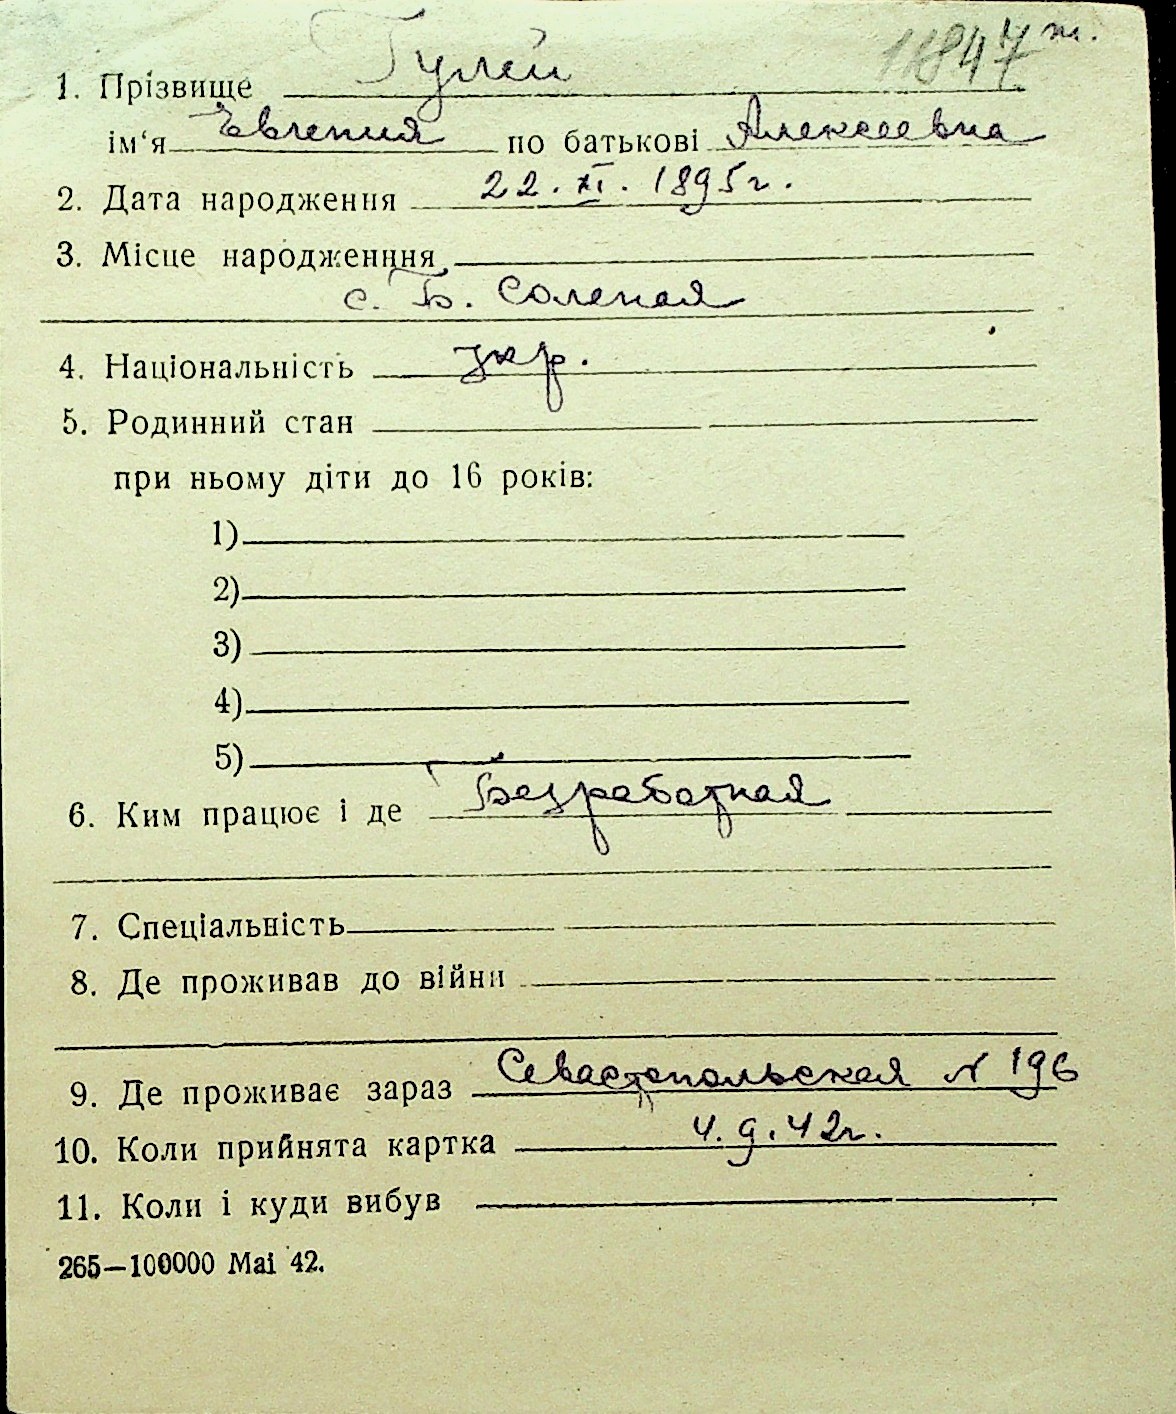 11847 т.
1. Прізвище Гулей
ім‘я Евгения по батькові Алексеевна
2. Дата народження 22. XI. 1895 г.
3. Місце народженння
с. Б. Соленая
4. Національність укр.
5. Родинний стан
при ньому діти до 16 років:
1)
2)
3)
4)
5)
6. Ким працює і де Безработная
7. Спеціальність
8. Де проживав до війни
9. Де проживає зараз Севастопольская N 196
10. Коли прийнята картка 4. 9. 42 г.
11. Коли і куди вибув
265—100000 Mai 42.